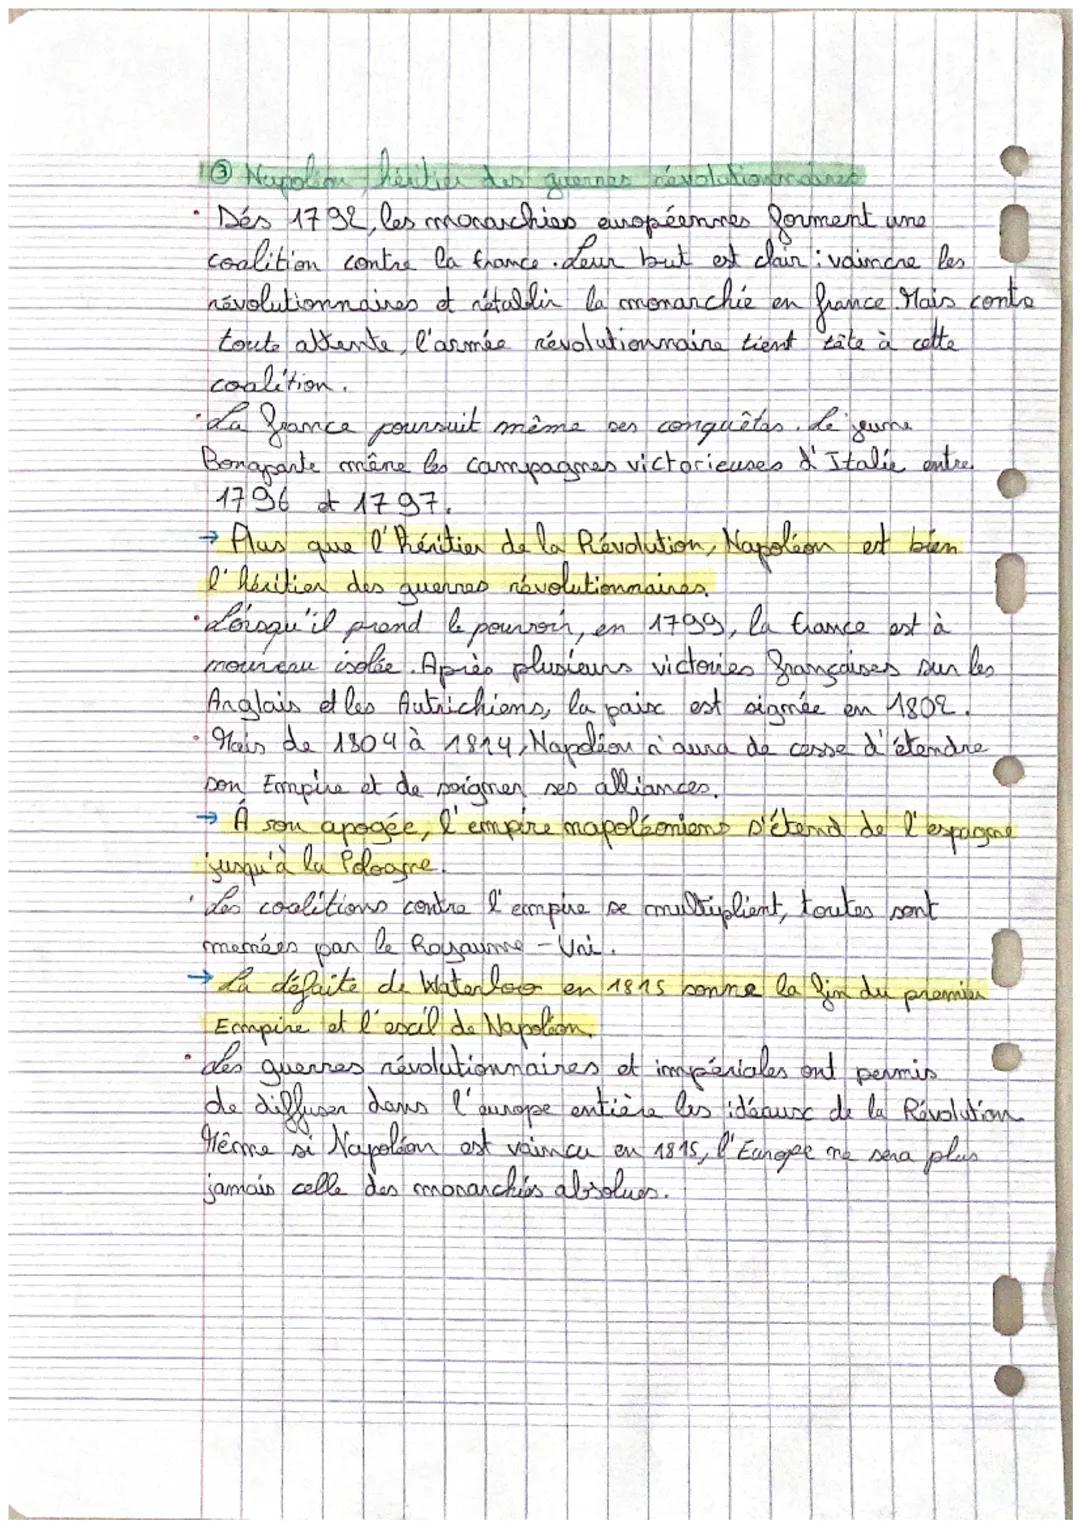 ③ Napoléon, héritier des guerres révolutionnaires
• Dés 1792, les monarchies européennes forment une
coalition contre la france. Leur but est clair : vaincre les
révolutionnaires et rétablir la monarchie en france. Mais contre
toute attente, l'armée révolutionnaire tient tête à cette
coalition.
• La france poursuit même ses conquêtes. Le jeune
Bonaparte mène les campagnes victorieuses d'Italie entre
1796 et 1797.
→ Plus que l'héritier de la Révolution, Napoléon est bien
l'héritier des guerres révolutionnaires.
• Lorsqu'il prend le pouvoir, en 1799, la france est à
nouveau isolée. Après plusieurs victoires françaises sur les
Anglais et les Autrichiens, la paix est signée en 1802.
• Mais de 1804 à 1814, Napoléon n'aura de cesse d'étendre
son Empire et de soigner ses alliances.
→ À son apogée, l'empire napoléoniens s'étend de l'espagne
jusqu'à la Pologne.
• Les coalitions contre l'empire se multiplient, toutes sont
menées par le Royaume-Uni.
→ La défaite de Waterloo en 1815 sonne la fin du premier
Empire et l'exil de Napoléon.
• Les guerres révolutionnaires et impériales ont permis
de diffuser dans l'europe entière les idéaux de la Révolution.
Même si Napoléon est vaincu en 1815, l'Europe ne sera plus
jamais celle des monarchies absolues.